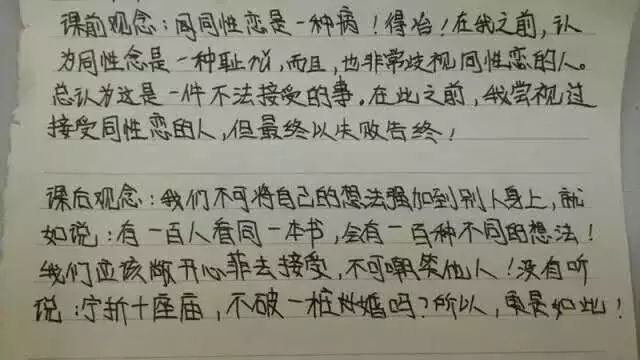 课前观念：同同性恋是一种病！得治！在我之前，认
为同性恋是一种耻
，而且，也非常歧视同性恋的人。
总认为这是一件不法接受的事。在此之前，我尝视过
接受同性恋的人，但最终以失败告终！
课后观念：我们不可将自己的想法强加到别人身上，就
如说：有一百人看同一本书，会有一百种不同的想法！
我们应该敞开心菲去接受，不可嘲笑他人！没有听
说：宁拆十座庙，不破一桩婚吗？所以，更是如此！